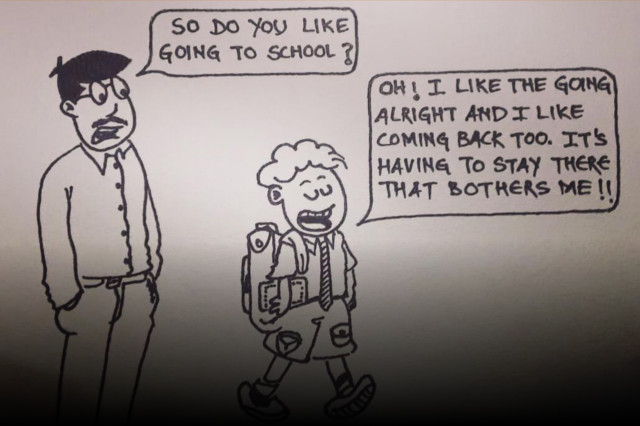 SO DO YOU LIKE
GOING TO SCHOOL?
OH! I LIKE THE GOING
ALRIGHT AND I LIKE
COMING BACK TOO. IT'S
HAVING TO STAY THERE
THAT BOTHERS ME!!